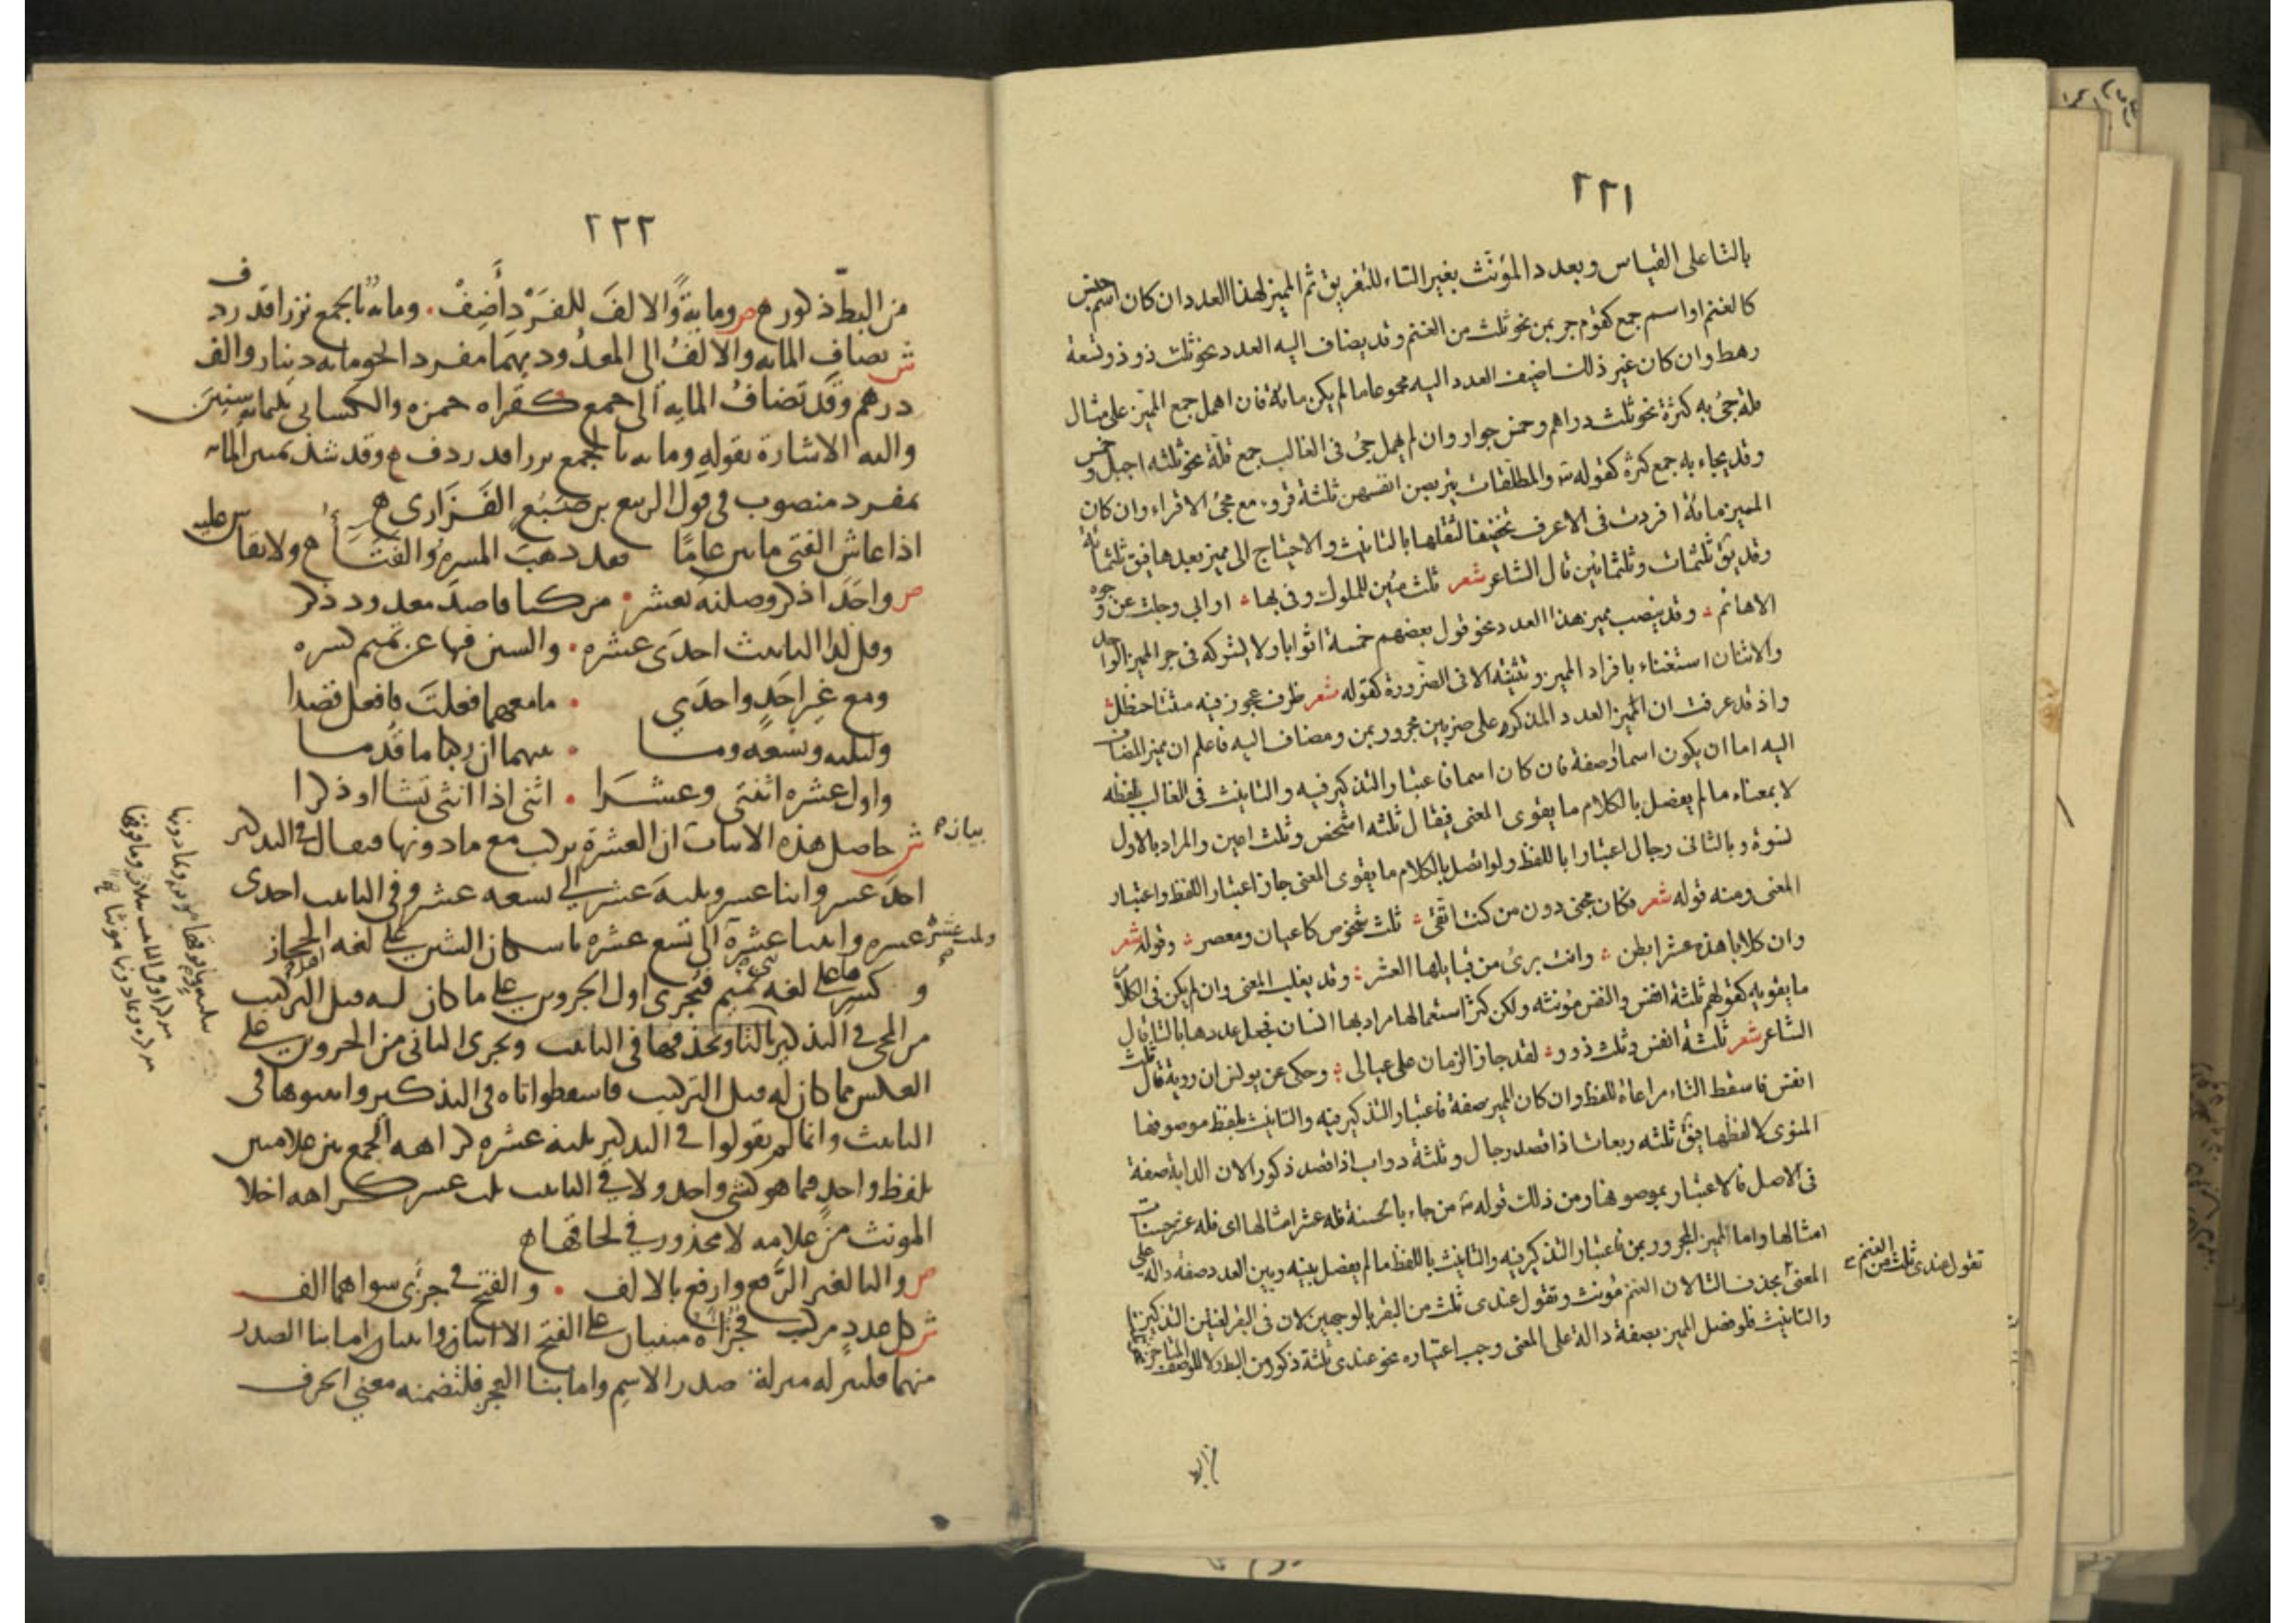 ٢٢١
بالتا على القياس وبعدد المؤنث بغير التاء للتفريق ثم المميز لهذا العدد ان كان اسم جنس
كالغنم او اسم جمع كقوم جر بمن نحو ثلث من الغنم وقد يضاف اليه العدد نحو ثلث ذود وتسعة
رهط وان كان غير ذلك اضيف العدد اليه مجموعا ما لم يكن مائة فان اهمل جمع المميز على مثال
قلة جئ به كثرة نحو ثلث دراهم وخمس جوار وان لم يهمل جئ فى الغالب جمع قلة نحو ثلثه اجبل و
وقد يجاء به جمع كثرة كقوله تعـ والمطلقات يتربصن انفسهن ثلثة قروء مع مجئ الاقراء وان كان
المميز مائة افردت فى الاعرف تخفيفا لثقلها بالتانيث والاحتياج الى مميز بعدها فيق ثلثمائة
وقد يق ثلثمئات وثلثمائين قال الشاعر شعر ثلث مئين للملوك وفى بها ردائي وجلت عن وجوه
الاهاتم وقد ينصب مميز هذا العدد نحو قول بعضهم خمسة اثوابا ولا يشركه فى جر المميز الواحد
والاثنان استغناء بافراد المميز وتثنيته الا فى الضرورة كقوله شعر ظرف عجوز فيه ثنتا حنظل
واذ قد عرفت ان المميز العدد المذكور على ضربين مجرور بمن ومضاف اليه فاعلم ان مميز المضاف
اليه اما ان يكون اسما او صفة فان كان اسما فاعتبار التذكير فيه والتانيث فى الغالب بلفظه
لا بمعناه ما لم يفصل بالكلام ما يقوى المعنى فيقال ثلثه اشخص وثلث اعين والمراد بالاول
نسوة وبالثانى رجال اعتبارا باللفظ ولو اتصل بالكلام ما يقوى المعنى جاز اعتبار اللفظ واعتبار
المعنى ومنه قوله شعر فكان مجنى دون من كنت اتقى ثلث شخوص كاعبان ومعصر وقوله شعر
وان كلابا هذه عشر ابطن وانت برئ من قبايلها العشر وقد يغلب المعنى وان لم يكن فى الكلام
ما يقويه كقولهم ثلثة انفس والنفس مؤنثه ولكن كثر استعمالها مرادبها انسان فجعل عددها بالتا قال
الشاعر شعر ثلثة انفس وثلث ذود لقد جار الزمان على عيالى وحكى عن يونس ان روبة قال ثلث
انفس فاسقط التاء مراعاة للفظ وان كان المميز صفة فاعتبار التذكير فيه والتانيث بلفظ موصوفها
المنوى لا لفظها فيق ثلثه ربعات اذا قصد رجال وثلثة دواب اذا قصد ذكور الان الدابة صفة
فى الاصل فالاعتبار بموصوفها ومن ذلك قوله تعـ من جاء بالحسنة فله عشر امثالها اى فله عشر حسنات
امثالها واما المميز المجرور بمن فاعتبار التذكير فيه والتانيث باللفظ ما لم يفصل بينه وبين العدد صفة دالة على
المعنى بحذف التا لان الغنم مؤنث وتقول عندى ثلث من البقر بالوجهين لان فى البقر لغتين التذكير
والتانيث فلو فصل المميز بصفة دالة على المعنى وجب اعتباره نحو عندى ثلثة ذكور من البط
تقول عندى ثلث من الغنم
٢٢٢
من البط ذكور ص ومایة والالف للفرد أضف وماىه بالجمع نزرا قد ردف
ش تضاف المايه والالف الى المعدود بهما مفردا نحو مايه دينار والف
درهم وقد تضاف المايه الى جمع كقراه حمزه والكسائي ثلمايه سنين
واليه الاشارة بقوله ومايه بالجمع نزرا قد ردف وقد شذ تمييز المايه
بمفرد منصوب فى قول الربيع بن ضبع الفزارى
اذا عاش الفتى مايتين عاما فقد ذهب المسرة والفتاء ولا يقاس عليه
ص واحد اذكر وصلنه بعشر مركبا قاصد معدود ذكر
وقل لدا التانيث احدى عشره والشين فيها عن تميم كسره
ومع غير احد واحدي ما معهما فعلت فافعل قصدا
ولثلثه وتسعه وما بينهما ان ركبا ما قدما
واول عشره اثنتى وعشرا اثنى اذا انثى تشا او ذكرا
ش حاصل هذه الابيات ان العشرة تركب مع ما دونها فيقال فى التذكير
احد عشر واثنا عشر وثلثه عشر الي تسعه عشر وفى التانيث احدى
عشره واثنتا عشرة الى تسع عشره باسكان الشين على لغه الحجاز
و كسرها على لغه تميم فتجرى اول الجزوين على ما كان له قبل التركيب
من المجئ فى التذكير بالتا وبحذفها فى التانيث وتجرى الثانى من الجزوين على
العكس مما كان له قبل التركيب فاسقطوا تاه فى التذكير واثبتوها فى
التانيث وانما لم يقولوا فى التذكير ثلثه عشره كراهه الجمع بين علامتين
بلفظ واحد فيما هو كشي واحد ولا فى التانيث ثلث عشر كراهه اخلا
المونث من علامه لا محذور في لحاقها
ص واليا لغير الرفع وارفع بالالف والفتح في جزئ سواهما الف
ش كل عدد مركب فجزاه مبنيان على الفتح الا اثنان واثنتان اما بنا الصدر
منهما فلتنزله منزلة صدر الاسم واما بنا العجز فلتضمنه معني الحرف
بيان